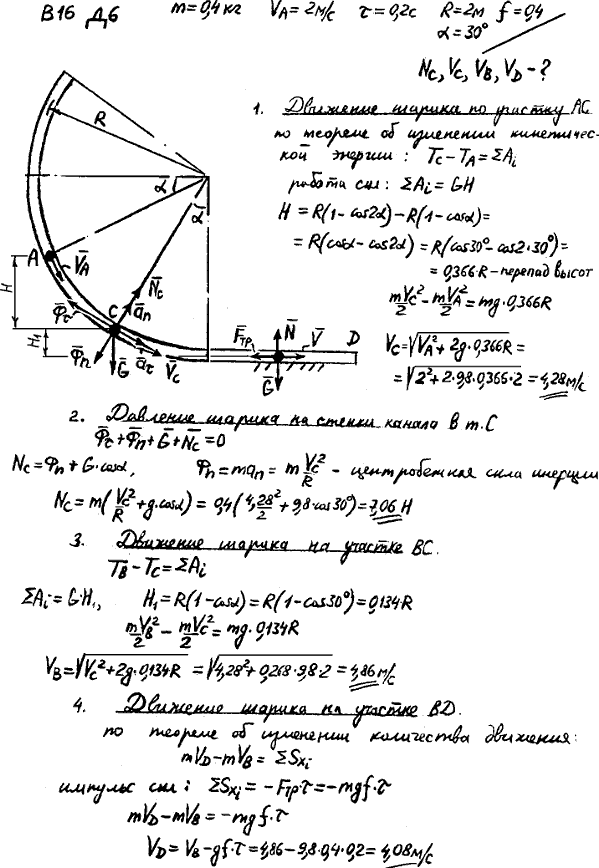 В16 Д6 m=0,4 кг V_A=2м/с τ=0,2с R=2м f=0,4
α=30°
N_C, V_C, V_B, V_D - ?
1. Движение шарика по участку AC
по теореме об изменении кинетичес-
кой энергии: T_C-T_A=ΣA_i
работа сил: ΣA_i=GH
H=R(1-cos2α)-R(1-cosα)=
=R(cosα-cos2α)=R(cos30°-cos2·30°)=
=0,366·R-перепад высот
mV_C²/2-mV_A²/2=mg·0,366R
V_C=√(V_A²+2g·0,366R)=
=√(2²+2·9,8·0,366·2)=4,28м/с
R
α
α
A
V̄_A
H
Φ̄_τ
C
N̄_C
ā_n
H₁
Φ̄_n
Ḡ
ā_τ
V_C
F̄_тр
N̄
V̄
D
Ḡ
2. Давление шарика на стенки канала в т.C
Φ̄_τ+Φ̄_n+Ḡ+N̄_C=0
N_C=Φ_n+G·cosα, Φ_n=ma_n=m V_C²/R - центробежная сила инерции
N_C=m(V_C²/R+g·cosα)=0,4(4,28²/2+9,8·cos30°)=7,06 Н
3. Движение шарика на участке BC.
T_B-T_C=ΣA_i
ΣA_i=G·H₁, H₁=R(1-cosα)=R(1-cos30°)=0,134·R
mV_B²/2-mV_C²/2=mg·0,134R
V_B=√(V_C²+2g·0,134R)=√(4,28²+0,268·9,8·2)=4,86м/с
4. Движение шарика на участке BD.
по теореме об изменении количества движения:
mV_D-mV_B=ΣS_xi
импульс сил: ΣS_xi=-F_тр·τ=-mgf·τ
mV_D-mV_B=-mgf·τ
V_D=V_B-gf·τ=4,86-9,8·0,4·0,2=4,08м/с